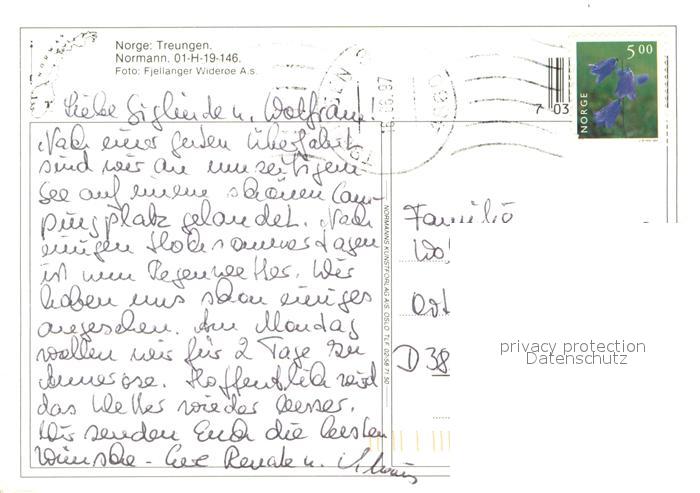 Norge: Treungen.
Normann. 01-H-19-146.
Foto: Fjellanger Widerøe A.s.
5 00
NORGE
7 03
97
Liebe Sieglinde u. Wolfram!
Nach einer guten Überfahrt
sind wir an unseitigem
See auf einem schönen Cam-
pingplatz gelandet. Nach
einigen Hochsommertagen
ist nun Regenwetter. Wir
haben uns schon einiges
angesehen. Am Montag
wollen wir für 2 Tage zu
Annerose. Hoffentlich wird
das Wetter wieder besser.
Wir senden Euch die besten
Wünsche - Eure Renate u.
NORMANNS KUNSTFORLAG A/S. OSLO TLF. 02-59 71 50
Familie
Wo
Ost
D 38
privacy protection
Datenschutz